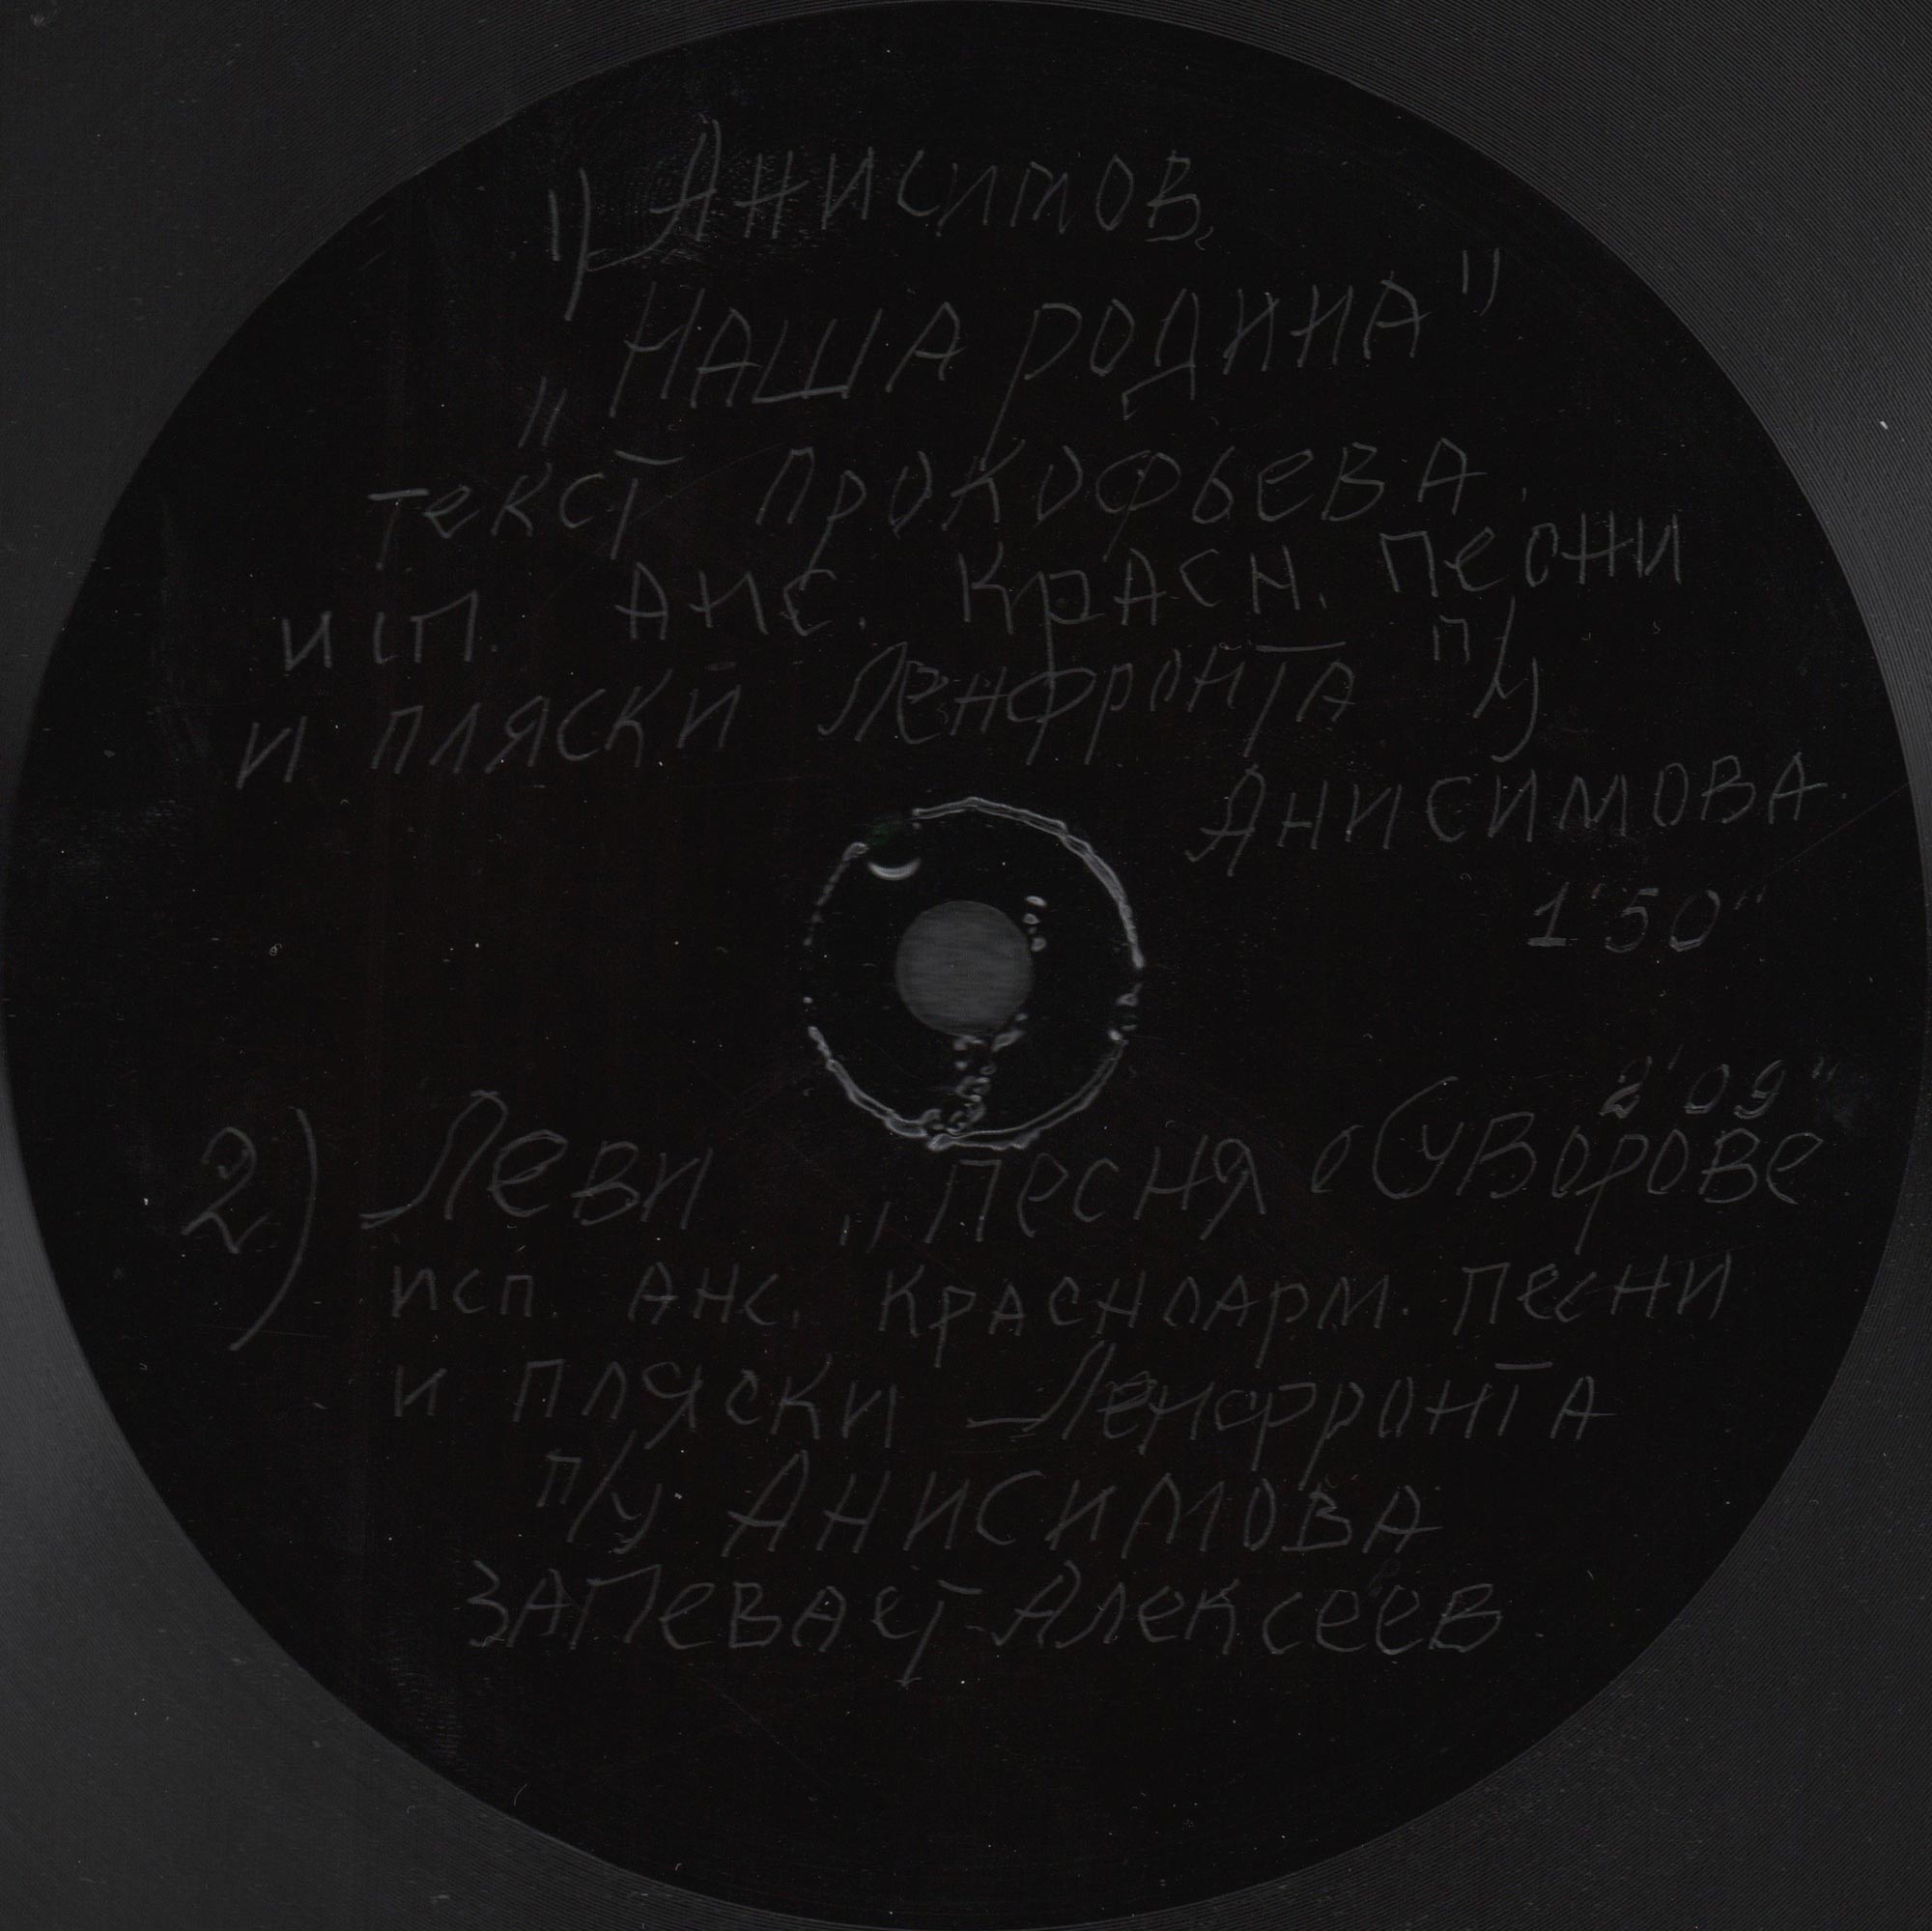 1) Анисимов,
„Наша родина"
текст Прокофьева.
исп. анс. красн. песни
и пляски Ленфронта п/у
Анисимова.
1'50"
2'09"
2) Леви „Песня о Суворове
исп. анс. красноарм. песни
и пляски Ленфронта
п/у Анисимова
запевает Алексеев